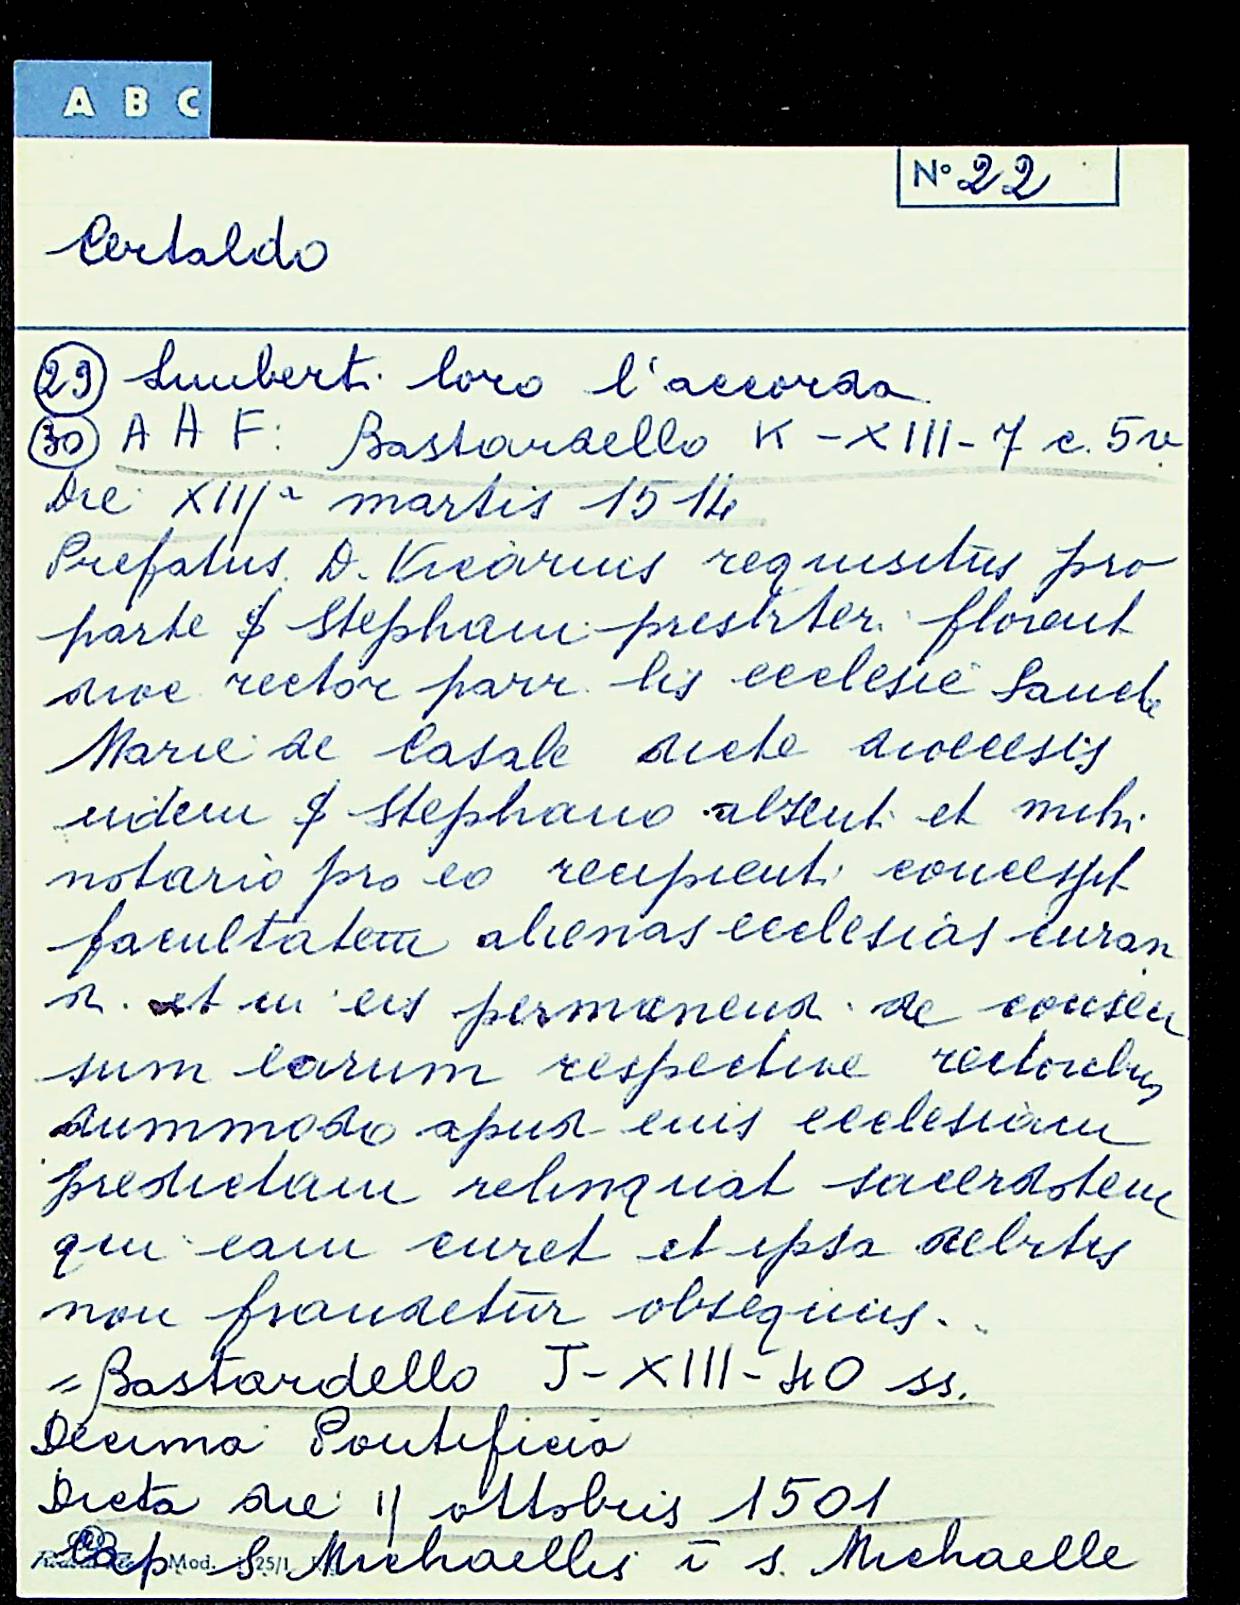 A B C
Nº 22
Certaldo
29 Lamberti loro l'accorda
30 A A F: Bastardello K - XIII - 7 c. 5v.
Die XIIIª martis 1514
Prefatus D. Vicarius requisitus pro
parte Stephani presbiter. florent
dioc rector parr. lis ecclesie Sancte
Marie de Casale dicte diocesis
eidem Stephano absenti et mihi
notario pro eo recipienti concessit
facultatem alienas ecclesias curan
d. et in eis permanend. de consen
sum earum respective rectoribus
dummodo apud eius ecclesiam
predictam relinquat sacerdotem
qui eam curet et ipsa debitis
non fraudetur obsequiis..
= Bastardello J - XIII - 40 ss.
Decima Pontificia
Dicta die 11 ottobris 1501
Cap S. Michaellis i s. Michaelle
Mod. 25/1